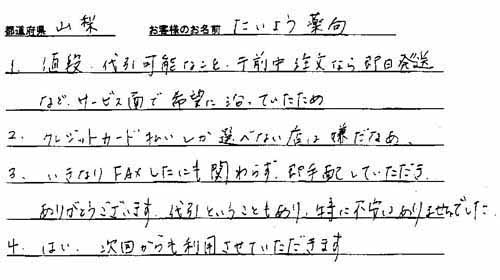 都道府県 山梨 お客様のお名前 たいよう薬局
1. 値段、代引可能なこと、午前中注文なら即日発送
など、サービス面で希望に沿っていたため
2. クレジットカード払いしか選べない店は嫌だなあ、
3. いきなりFAXしたにも関わらず、即手配していただき、
ありがとうございます。代引ということもあり、特に不安はありませんでした。
4. はい、次回からも利用させていただきます